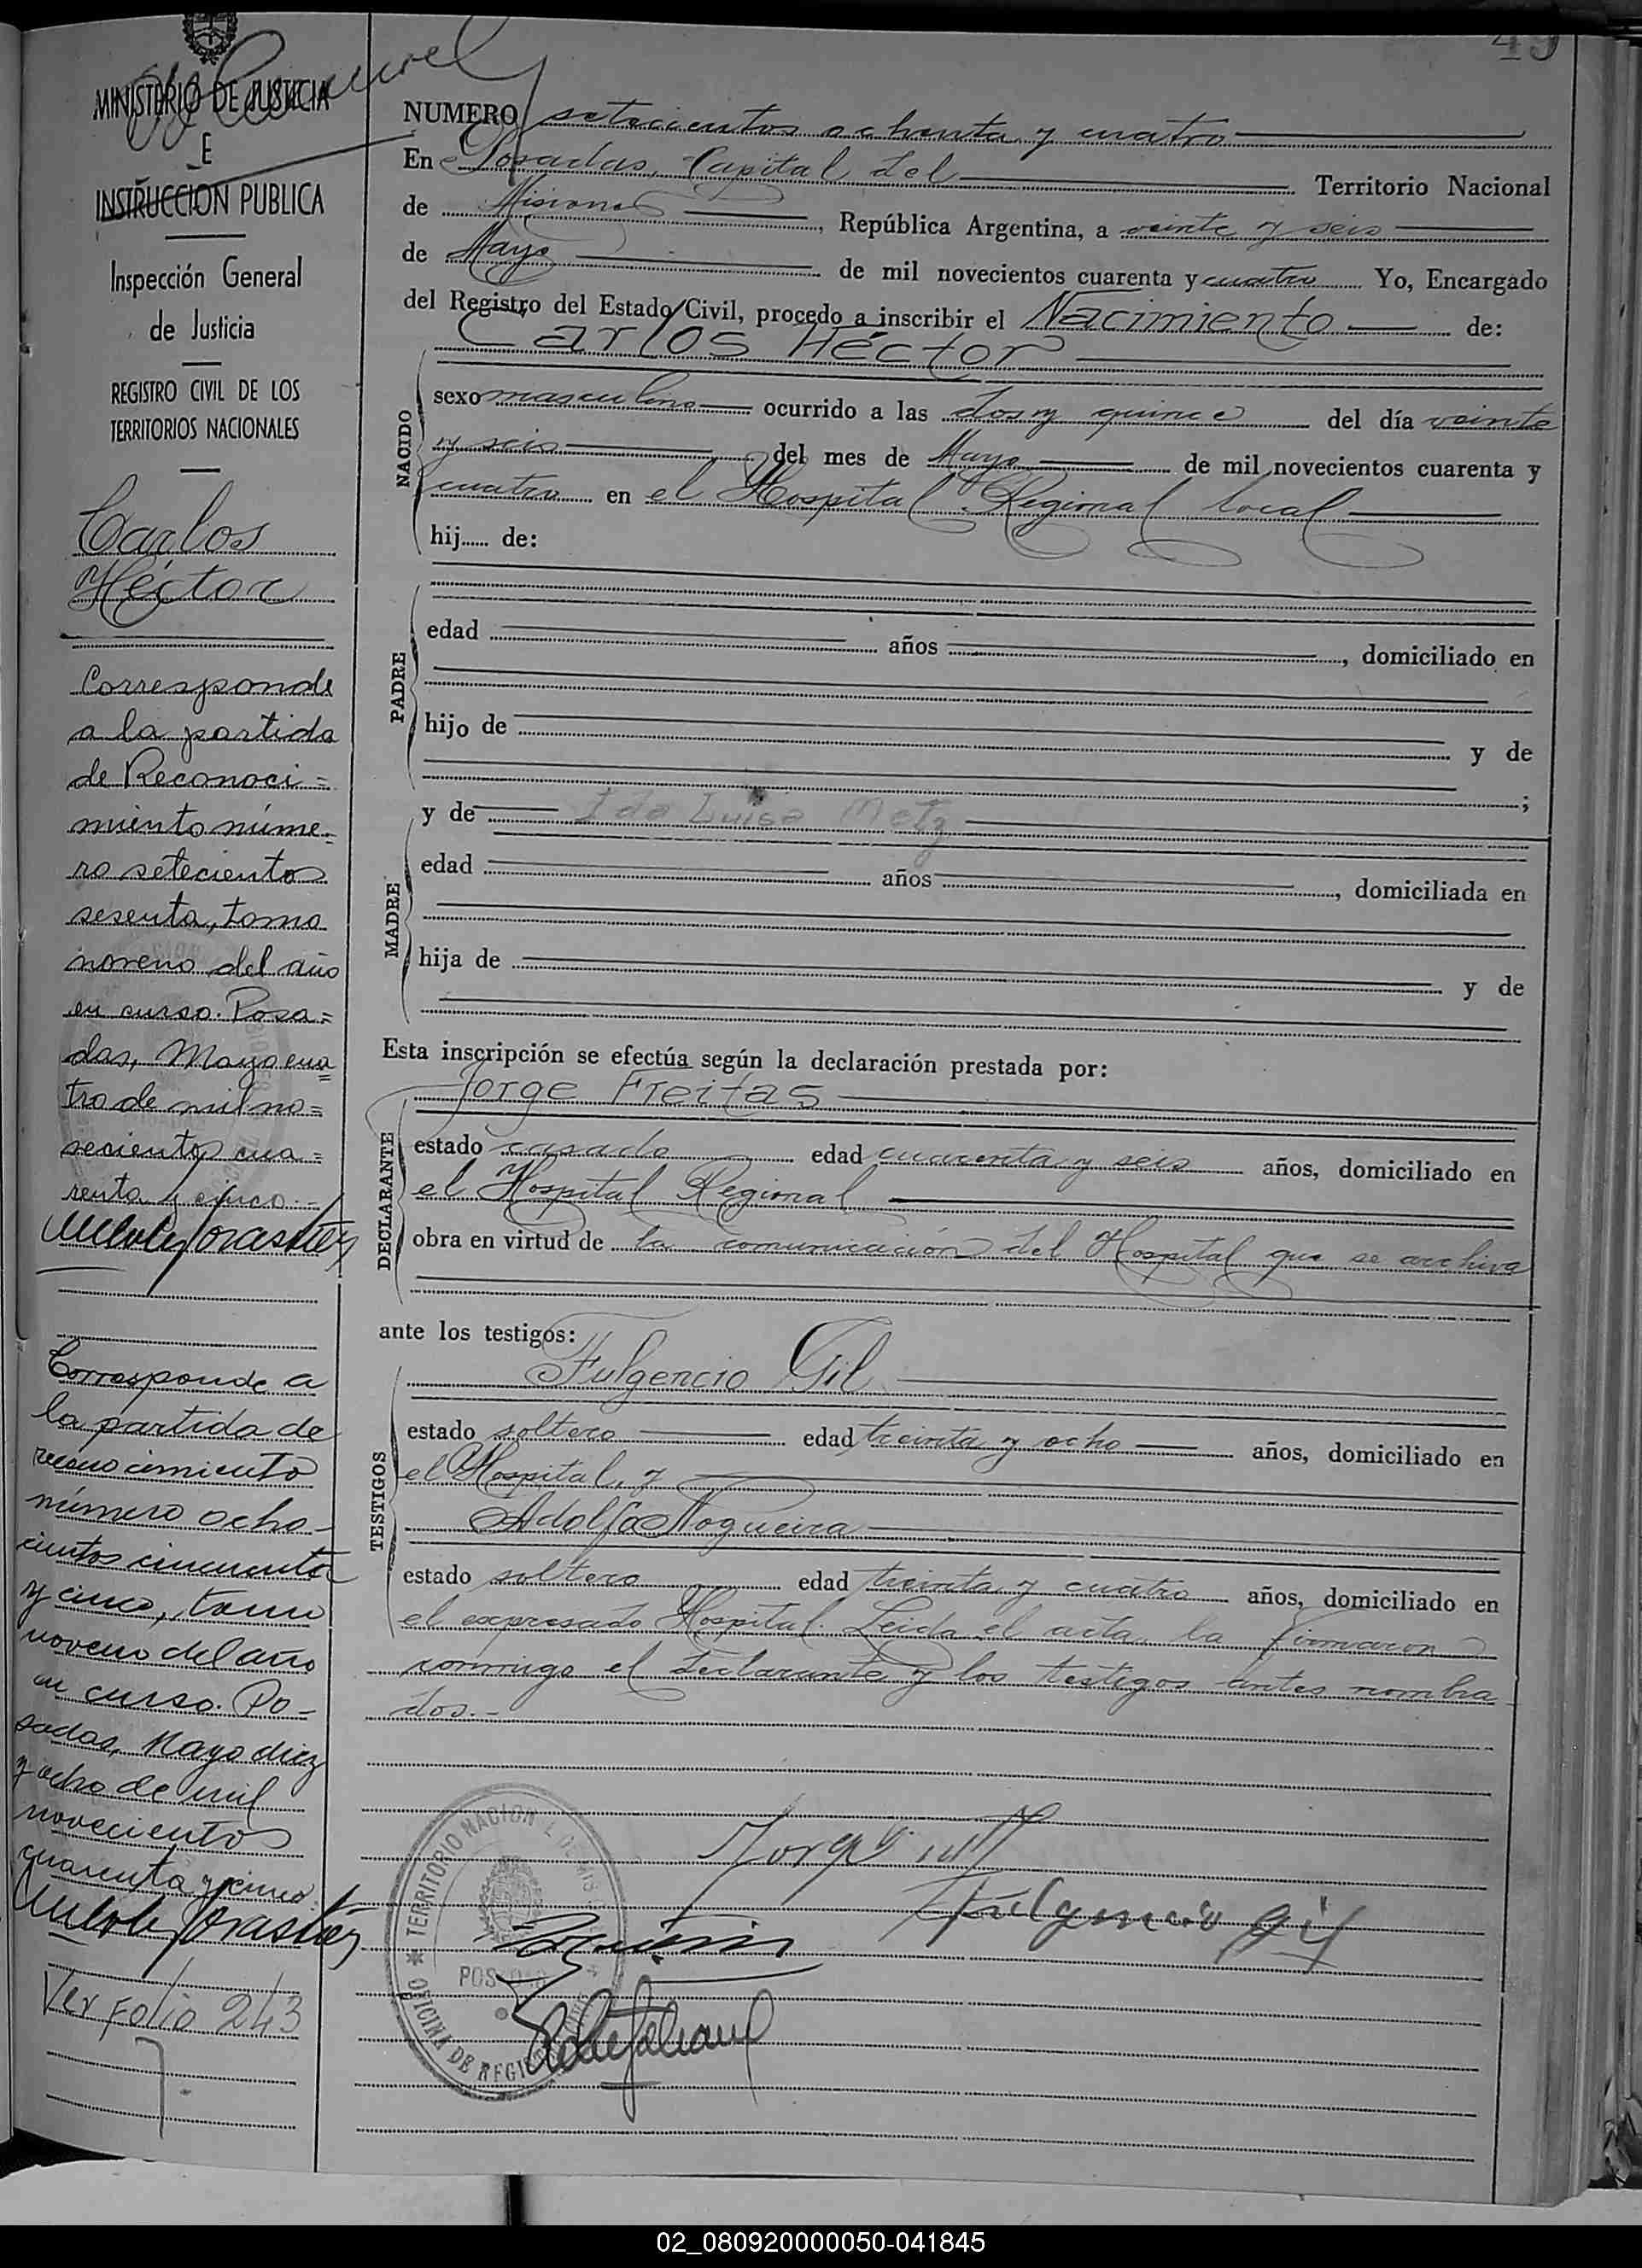 49
MINISTERIO DE JUSTICIA
E
INSTRUCCION PUBLICA
Inspección General
de Justicia
REGISTRO CIVIL DE LOS
TERRITORIOS NACIONALES
Carlos
Héctor
Corresponde
a la partida
de Reconoci=
miento núme=
ro setecientos
sesenta, tomo
noveno del año
en curso. Posa=
das, Mayo cua=
tro de mil no=
vecientos cua=
renta y cinco.-
Corresponde a
la partida de
reconocimiento
número ocho-
cientos cincuenta
y cinco, tomo
noveno del año
en curso. Po-
sadas, Mayo diez
y ocho de mil
novecientos
cuarenta y cinco
Ver Folio 243
NUMERO setecientos ochenta y cuatro
En Posadas, Capital del Territorio Nacional
de Misiones, República Argentina, a veinte y seis
de Mayo de mil novecientos cuarenta y cuatro Yo, Encargado
del Registro del Estado Civil, procedo a inscribir el Nacimiento de:
Carlos Héctor
NACIDO
sexo masculino ocurrido a las dos y quince del día veinte
y seis del mes de Mayo de mil novecientos cuarenta y
cuatro en el Hospital Regional local
hij...... de:
PADRE
edad años , domiciliado en
hijo de y de
;
y de Ida Luisa Metz
MADRE
edad años , domiciliada en
hija de y de
Esta inscripción se efectúa según la declaración prestada por:
Jorge Freitas
DECLARANTE
estado casado edad cuarenta y seis años, domiciliado en
el Hospital Regional
obra en virtud de la comunicación del Hospital que se archiva
ante los testigos:
Fulgencio Gil
TESTIGOS
estado soltero edad treinta y ocho años, domiciliado en
el Hospital, y
Adolfo Nogueira
estado soltero edad treinta y cuatro años, domiciliado en
el expresado Hospital. Leida el acta la firmaron
conmigo el declarante y los testigos antes nombra-
dos.-
TERRITORIO NACIONAL DE MIS
POSADAS
OFICINA DE REGIS
Fulgencio Gil
02_080920000050-041845